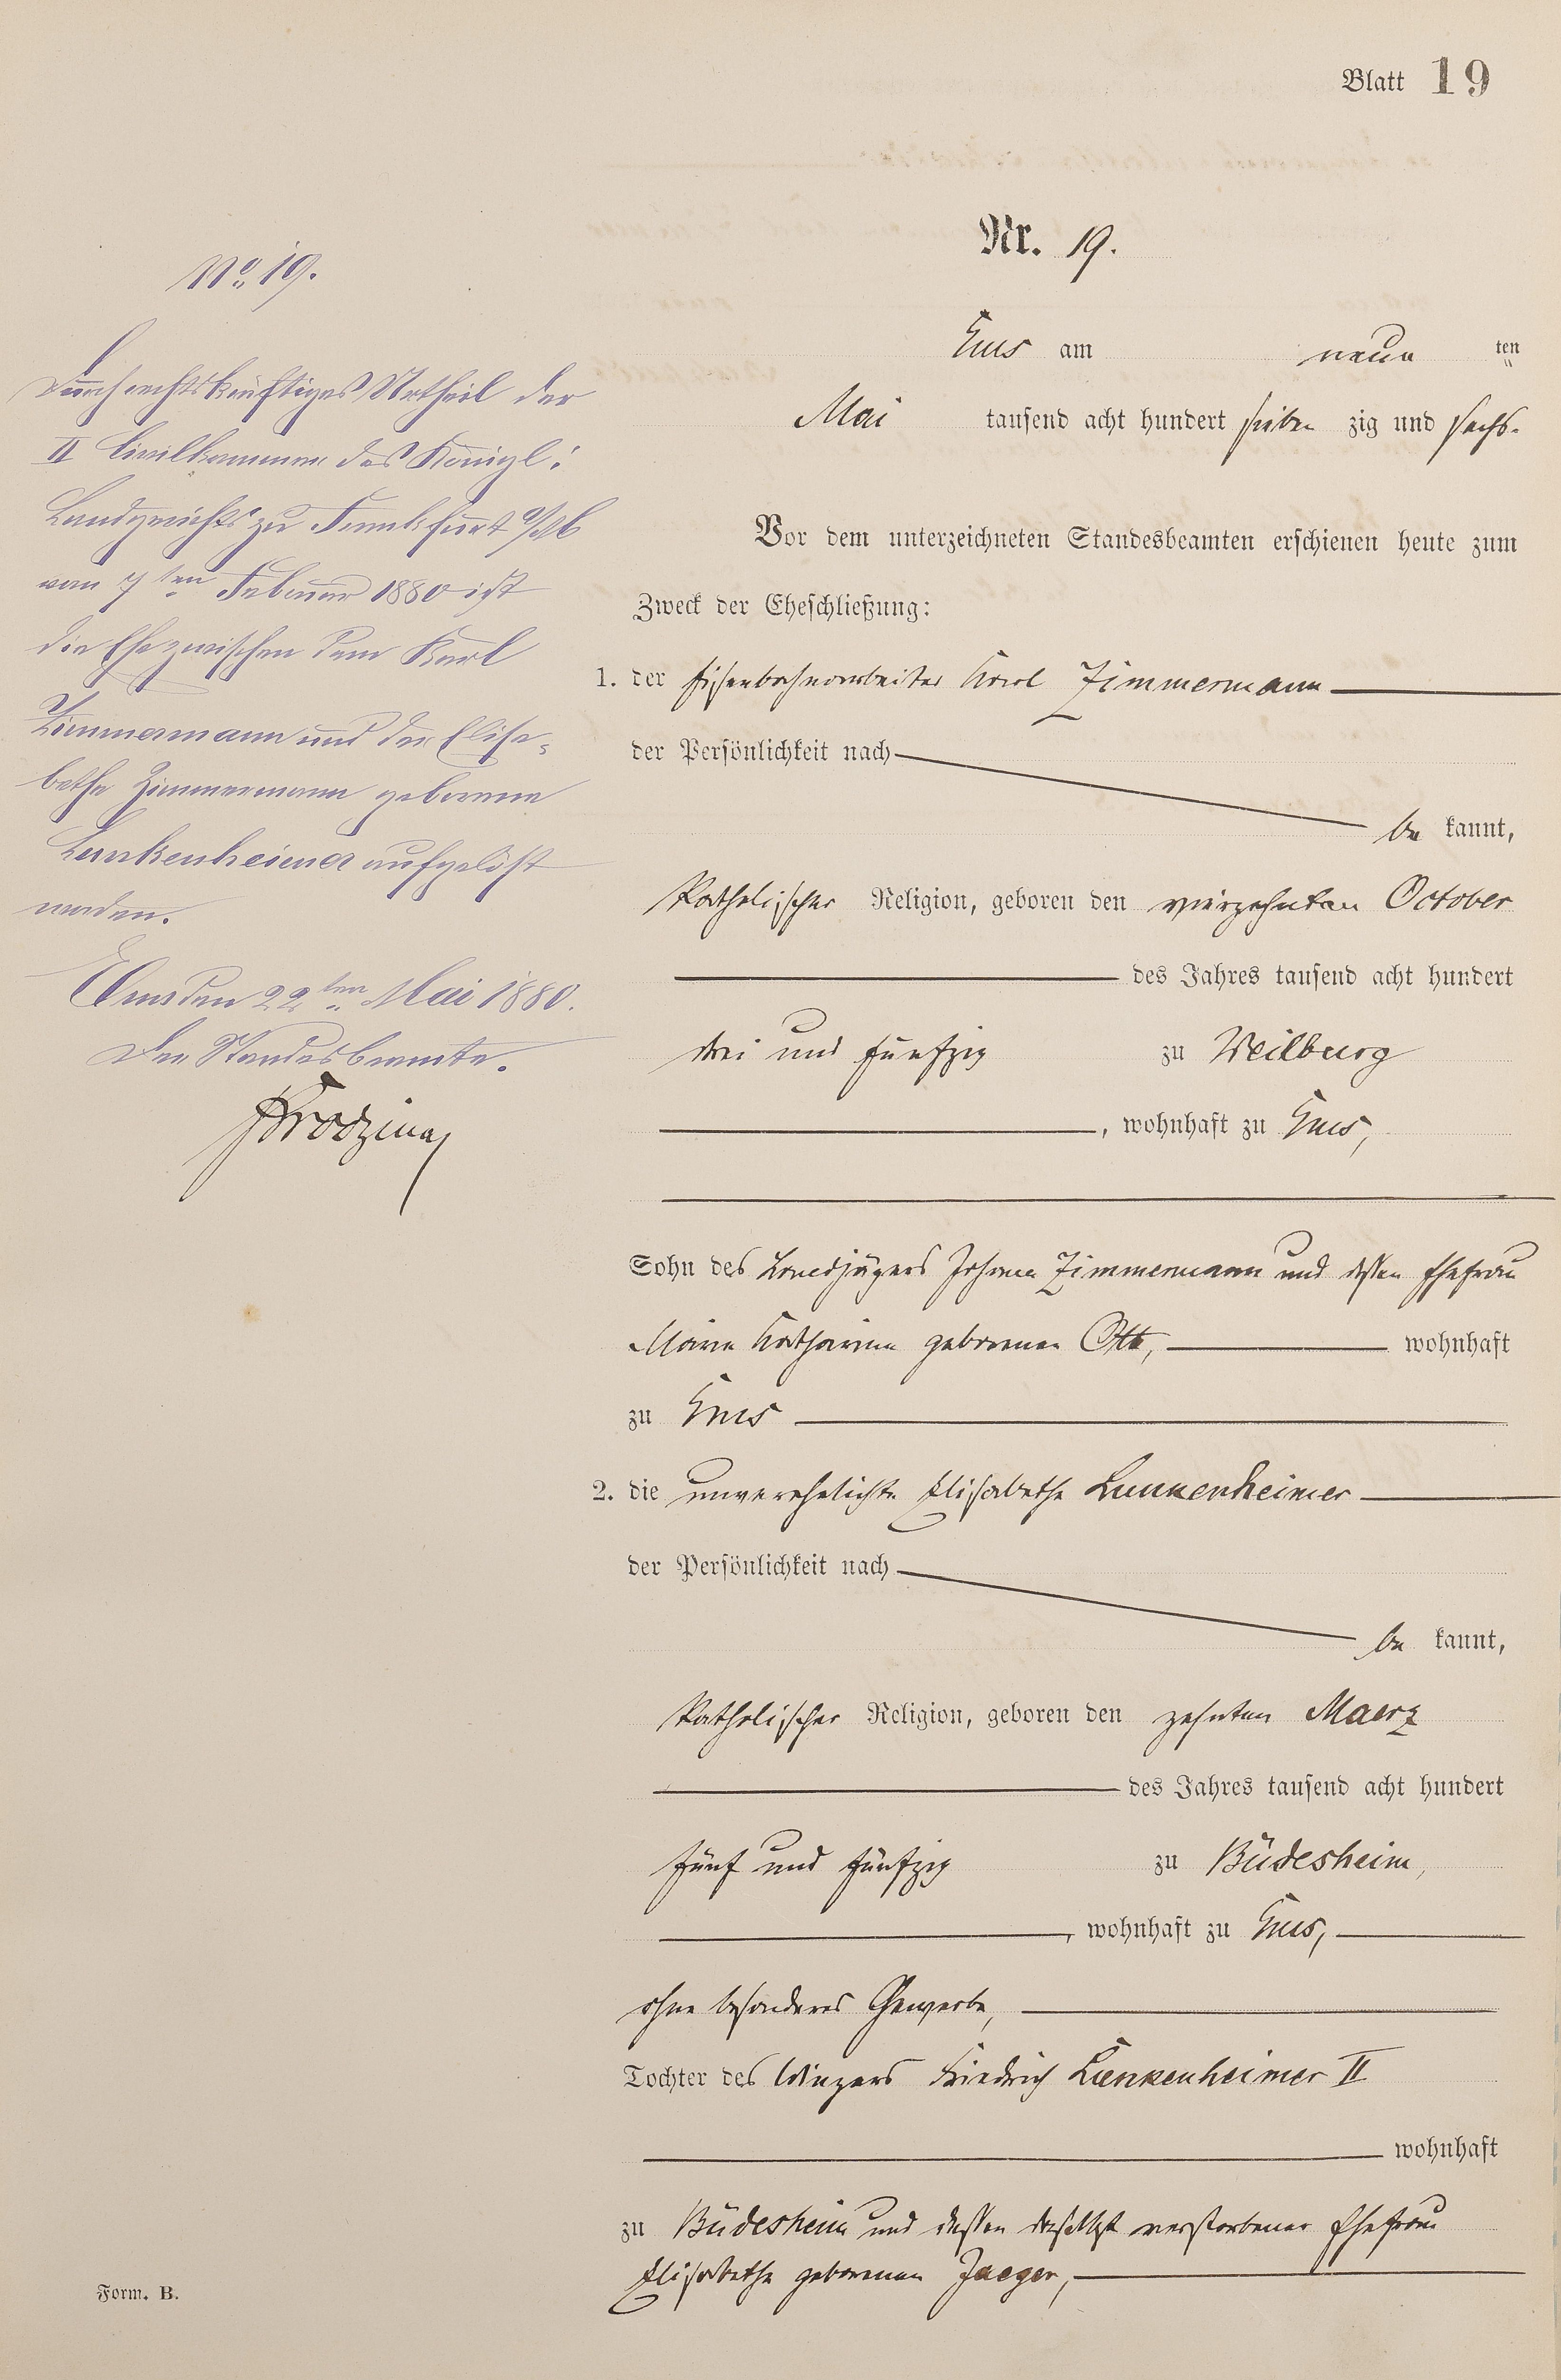 Blatt 19
Nr. 19.
Ems am neun ten
Mai tausend acht hundert sieben zig und sechs.
Vor dem unterzeichneten Standesbeamten erschienen heute zum
Zweck der Eheschließung:
1. der Eisenbahnarbeiter Karl Zimmermann
der Persönlichkeit nach
be kannt,
katholischer Religion, geboren den vierzehnten October
des Jahres tausend acht hundert
drei und fünfzig zu Weilburg
, wohnhaft zu Ems,
Sohn des Landjägers Johann Zimmermann und dessen Ehefrau
Maria Katharina geborenen Ott, wohnhaft
zu Ems
2. die unverehelichte Elisabethe Lunkenheimer
der Persönlichkeit nach
be kannt,
katholischer Religion, geboren den zehnten Maerz
des Jahres tausend acht hundert
fünf und fünfzig zu Büdesheim,
, wohnhaft zu Ems,
ohne besonderes Gewerbe,
Tochter des Winzers Friedrich Lunkenheimer II
wohnhaft
zu Büdesheim und dessen daselbst verstorbener Ehefrau
Elisabethe geborenen Jaeger,
No. 19.
Durch rechtskräftiges Urtheil der
II Civilkammer des Königl:
Landgerichts zu Frankfurt a/M
vom 7ten Februar 1880 ist
die Ehe zwischen dem Karl
Zimmermann und der Elisa-
bethe Zimmermann geborenen
Lunkenheimer aufgelöst
worden.
Ems den 22ten Mai 1880.
Der Standesbeamte.
Form. B.